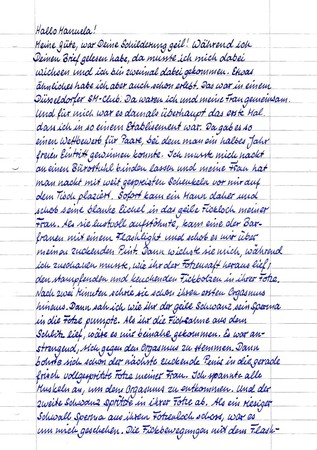 Hallo Manuela!
Meine Güte, war Deine Schilderung geil! Während ich
Deinen Brief gelesen habe, da musste ich mich dabei
wichsen und ich bin zweimal dabei gekommen. Etwas
ähnliches habe ich aber auch schon erlebt. Das war in einem
Düsseldorfer SM-Club. Da waren ich und meine Frau gemeinsam.
Und für mich war es damals überhaupt das erste Mal,
dass ich in so einem Etablisement war. Da gab es so
einen Wettbewerb für Paare, bei dem man ein halbes Jahr
freien Eintritt gewinnen konnte. Ich musste mich nackt
an einen Bürostuhl binden lassen und meine Frau hat
man nackt mit weit gespreizten Schenkeln vor mir auf
dem Tisch plaziert. Sofort kam ein Mann daher und
schob seine blanke Eichel in das geile Fickloch meiner
Frau. Als sie lustvoll aufstöhnte, kam eine der Bar-
frauen mit einem Flashlight und schob es mir über
meinen zuckenden Pint. Dann wichste sie mich, während
ich zuschauen musste, wie ihr der Fotzensaft heraus lief,
den stampfenden und keuchenden Fickbolzen in ihrer Fotze.
Nach zwei Minuten schrie sie schon ihren ersten Orgasmus
hinaus. Dann sah ich wie ihr der geile Schwanz sein Sperma
in die Fotze pumpte. Als ihr die Ficksahne aus dem
Schlitz lief, wäre es mir beinahe gekommen. Es war an-
strengend, sich gegen den Orgasmus zu stemmen. Dann
bohrte sich schon der nächste zuckende Penis in die gerade
frisch vollgespritzte Fotze meiner Frau. Ich spannte alle
Muskeln an, um dem Orgasmus zu entkommen. Und der
zweite Schwanz spritzte in ihrer Fotze ab. Als ein riesiger
Schwall Sperma aus ihrem Fotzenloch schoss, war es
um mich geschehen. Die Fickbewegungen mit dem Flash-